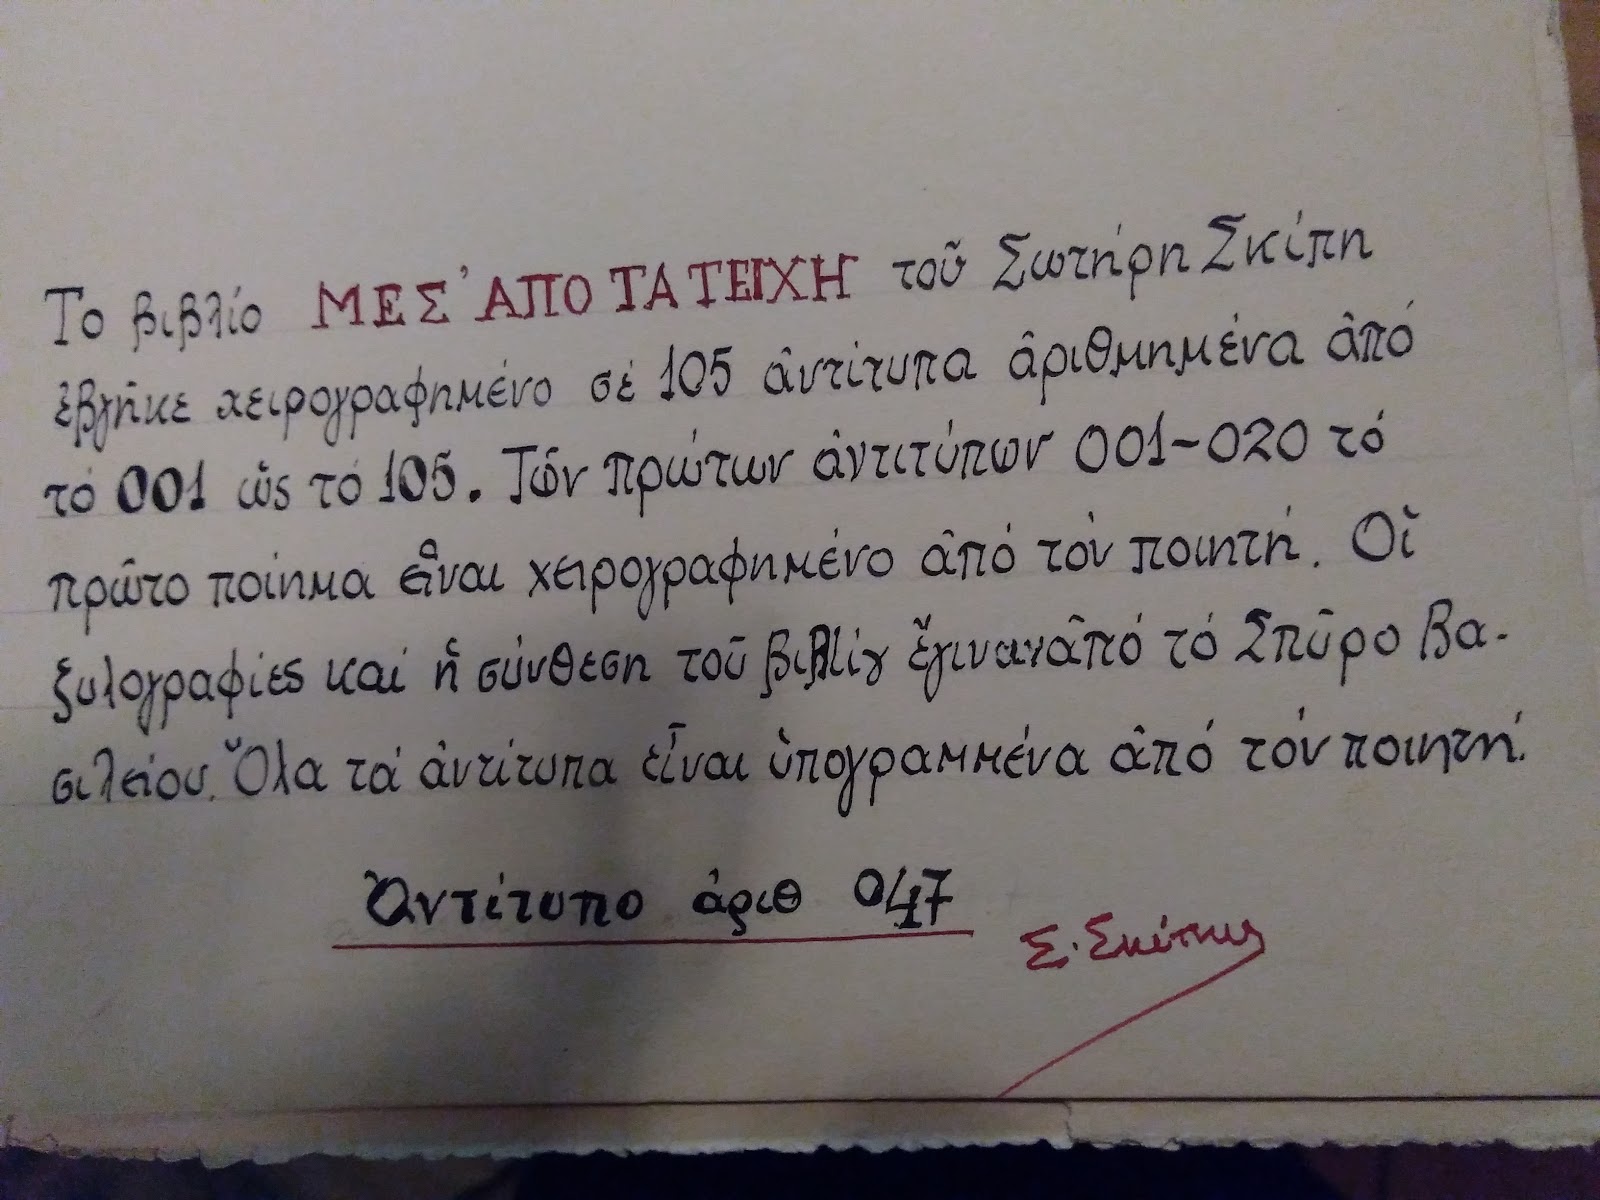 Το βιβλίο ΜΕΣ' ΑΠΟ ΤΑ ΤΕΙΧΗ τοῦ Σωτήρη Σκίπη
ἐβγῆκε χειρογραφημένο σέ 105 ἀντίτυπα ἀριθμημένα ἀπό
τό 001 ὥς τό 105. Τῶν πρώτων ἀντιτύπων 001-020 τό
πρῶτο ποίημα εἶναι χειρογραφημένο ἀπό τόν ποιητή. Οἱ
ξυλογραφίες καί ἡ σύνθεση τοῦ βιβλίου ἔγιναν ἀπό τό Σπῦρο Βα-
σιλείου. Ὅλα τά ἀντίτυπα εἶναι ὑπογραμμένα ἀπό τόν ποιητή.
Ἀντίτυπο ἀριθ 047
Σ. Σκίπης